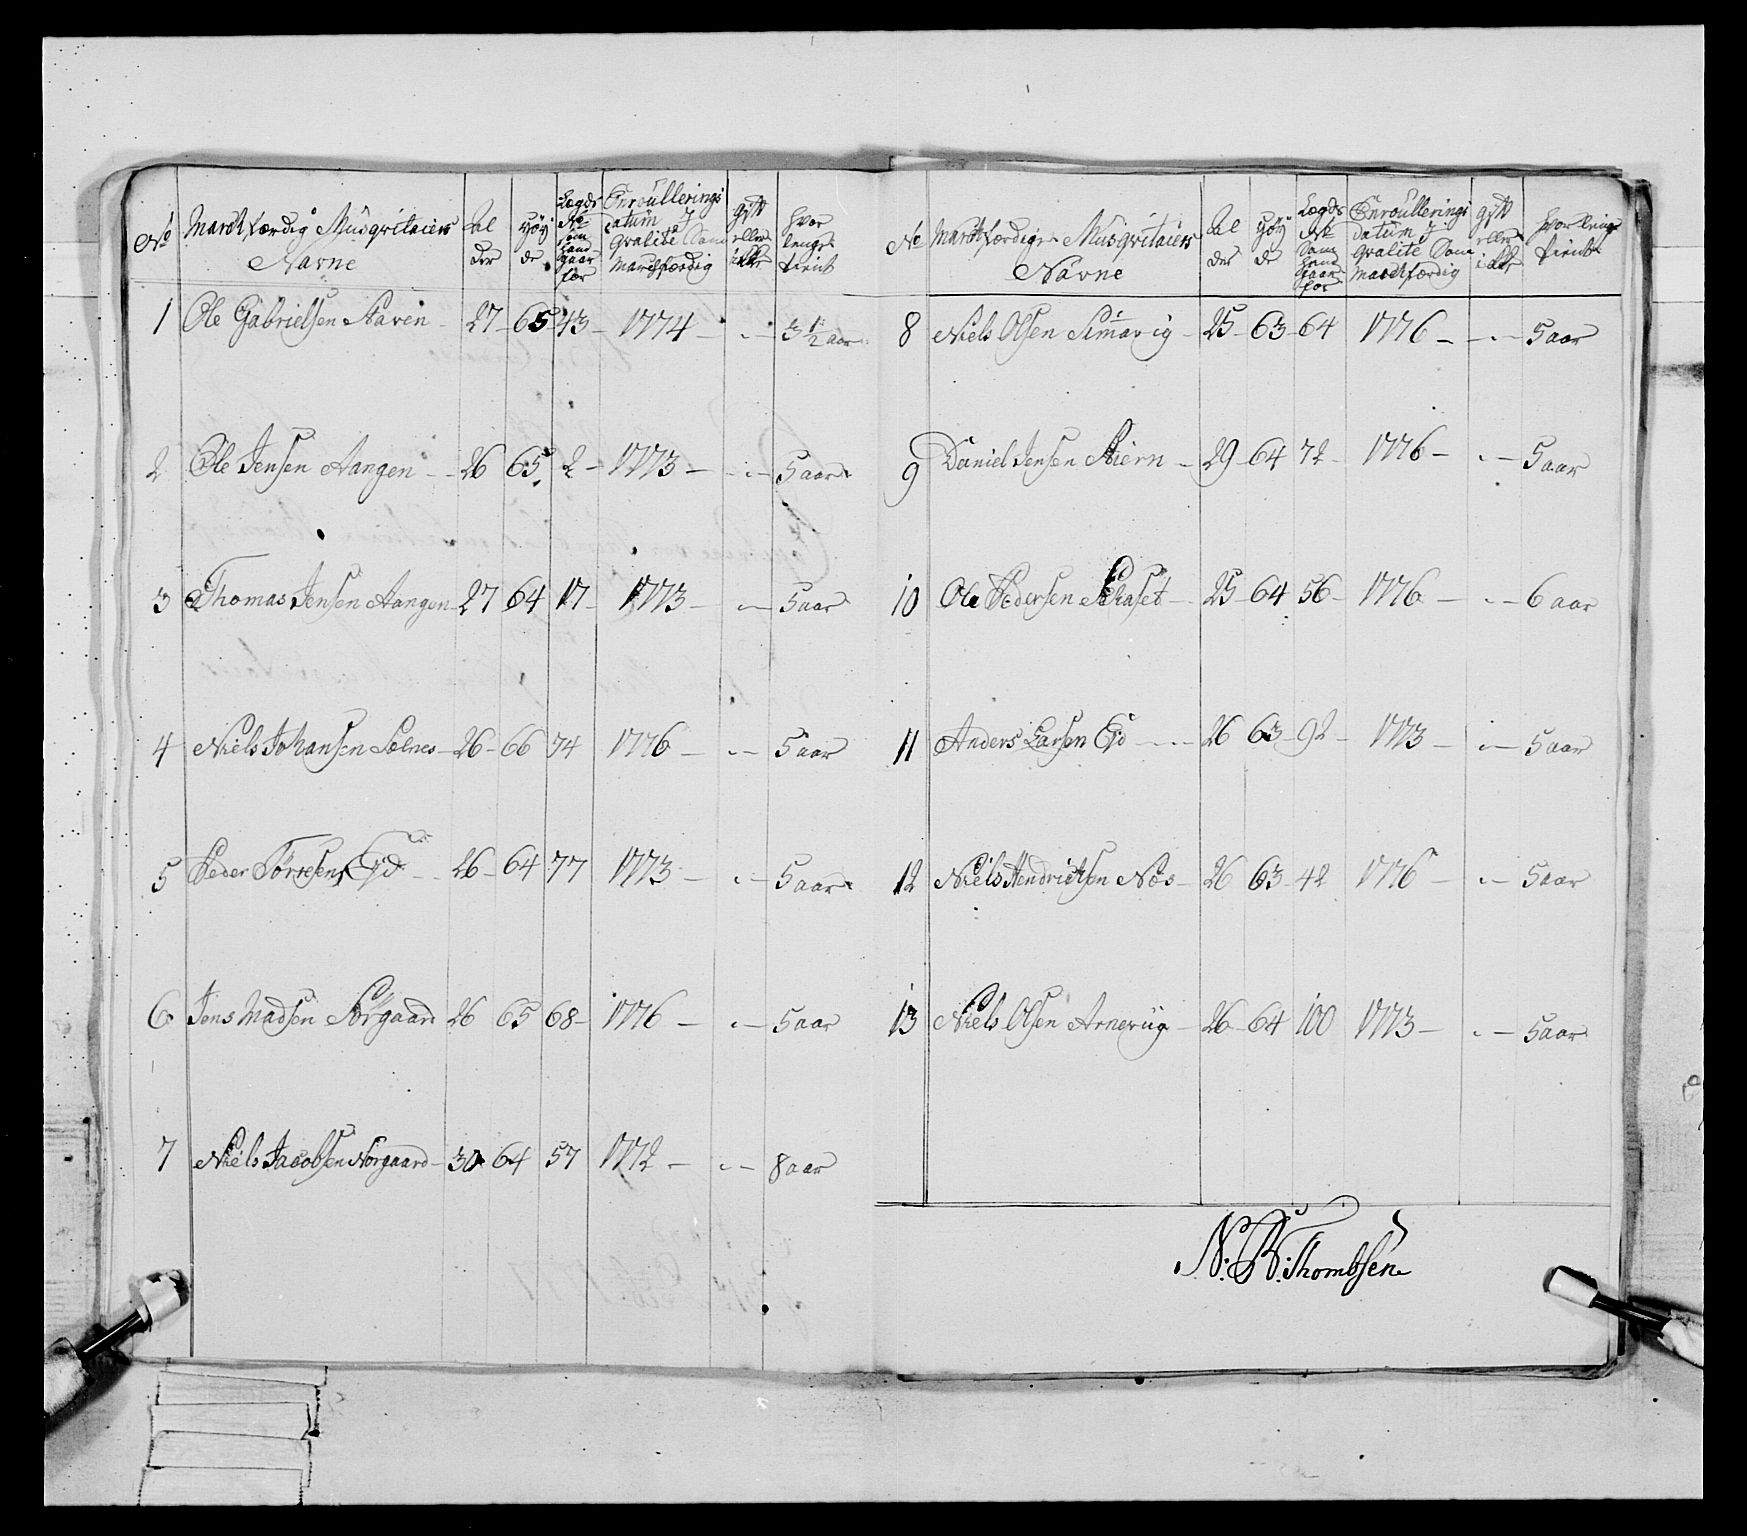 No
Marchfærdig Musqvitaiers
Navne
Al
der
Høy
de
Lægds
No
som
hand
staar
for
Enroullerings
datum J
qvalite Som
Marchfærdig
Gift
eller
ikke
hvor
lenge
tient
1 Ole Gabrielsen Staven - 27 - 65 43 - 1774 - - 3 1/2 aar
2 Ole Jensen Aangen - - 26 65 2 - 1773 - - 5 aar
3 Thomas Jensen Aangen 27 64 17 - 1773 - - 5 aar
4 Niels Johansen Solnes - 26 - 66 74 1776 - - 5 aar
5 Peder Torresen Eyd - - 26 - 64 77 1773 - - 5 aar
6 Jens Madsen Sørgaard 26 65 68 - 1776 - - 5 aar
7 Niels Jacobsen Norgaard - 30 64 57 1772 - - 8 aar
No
Marchfærdige Musqvitaiers
Navne
Al
der
Høy
de
Lægds
No
som
hand
staar
for
Enroullerings
datum J
qvalite Som
Marchfærdig
Gift
eller
ikke
hvor lenge
tient
8 Niels Olsen Simavig - 25 - 63 - 64 1776 - - 5 aar
9 Daniel Jensen - 29 - 64 72 - 1776 - - 5 aar
10 Ole Pedersen - 25 - 64 56 - 1776 - - 6 aar
11 Anders Larsen Eyd - - - 26 63 - 92 - 1773 - - 5 aar
12 Niels Hendrichsen Næs - 26 63 - 42 1776 - - 5 aar
13 Niels Olsen Arneviig - 26 - 64 100 1773 - - 5 aar
N: B: Thombsen